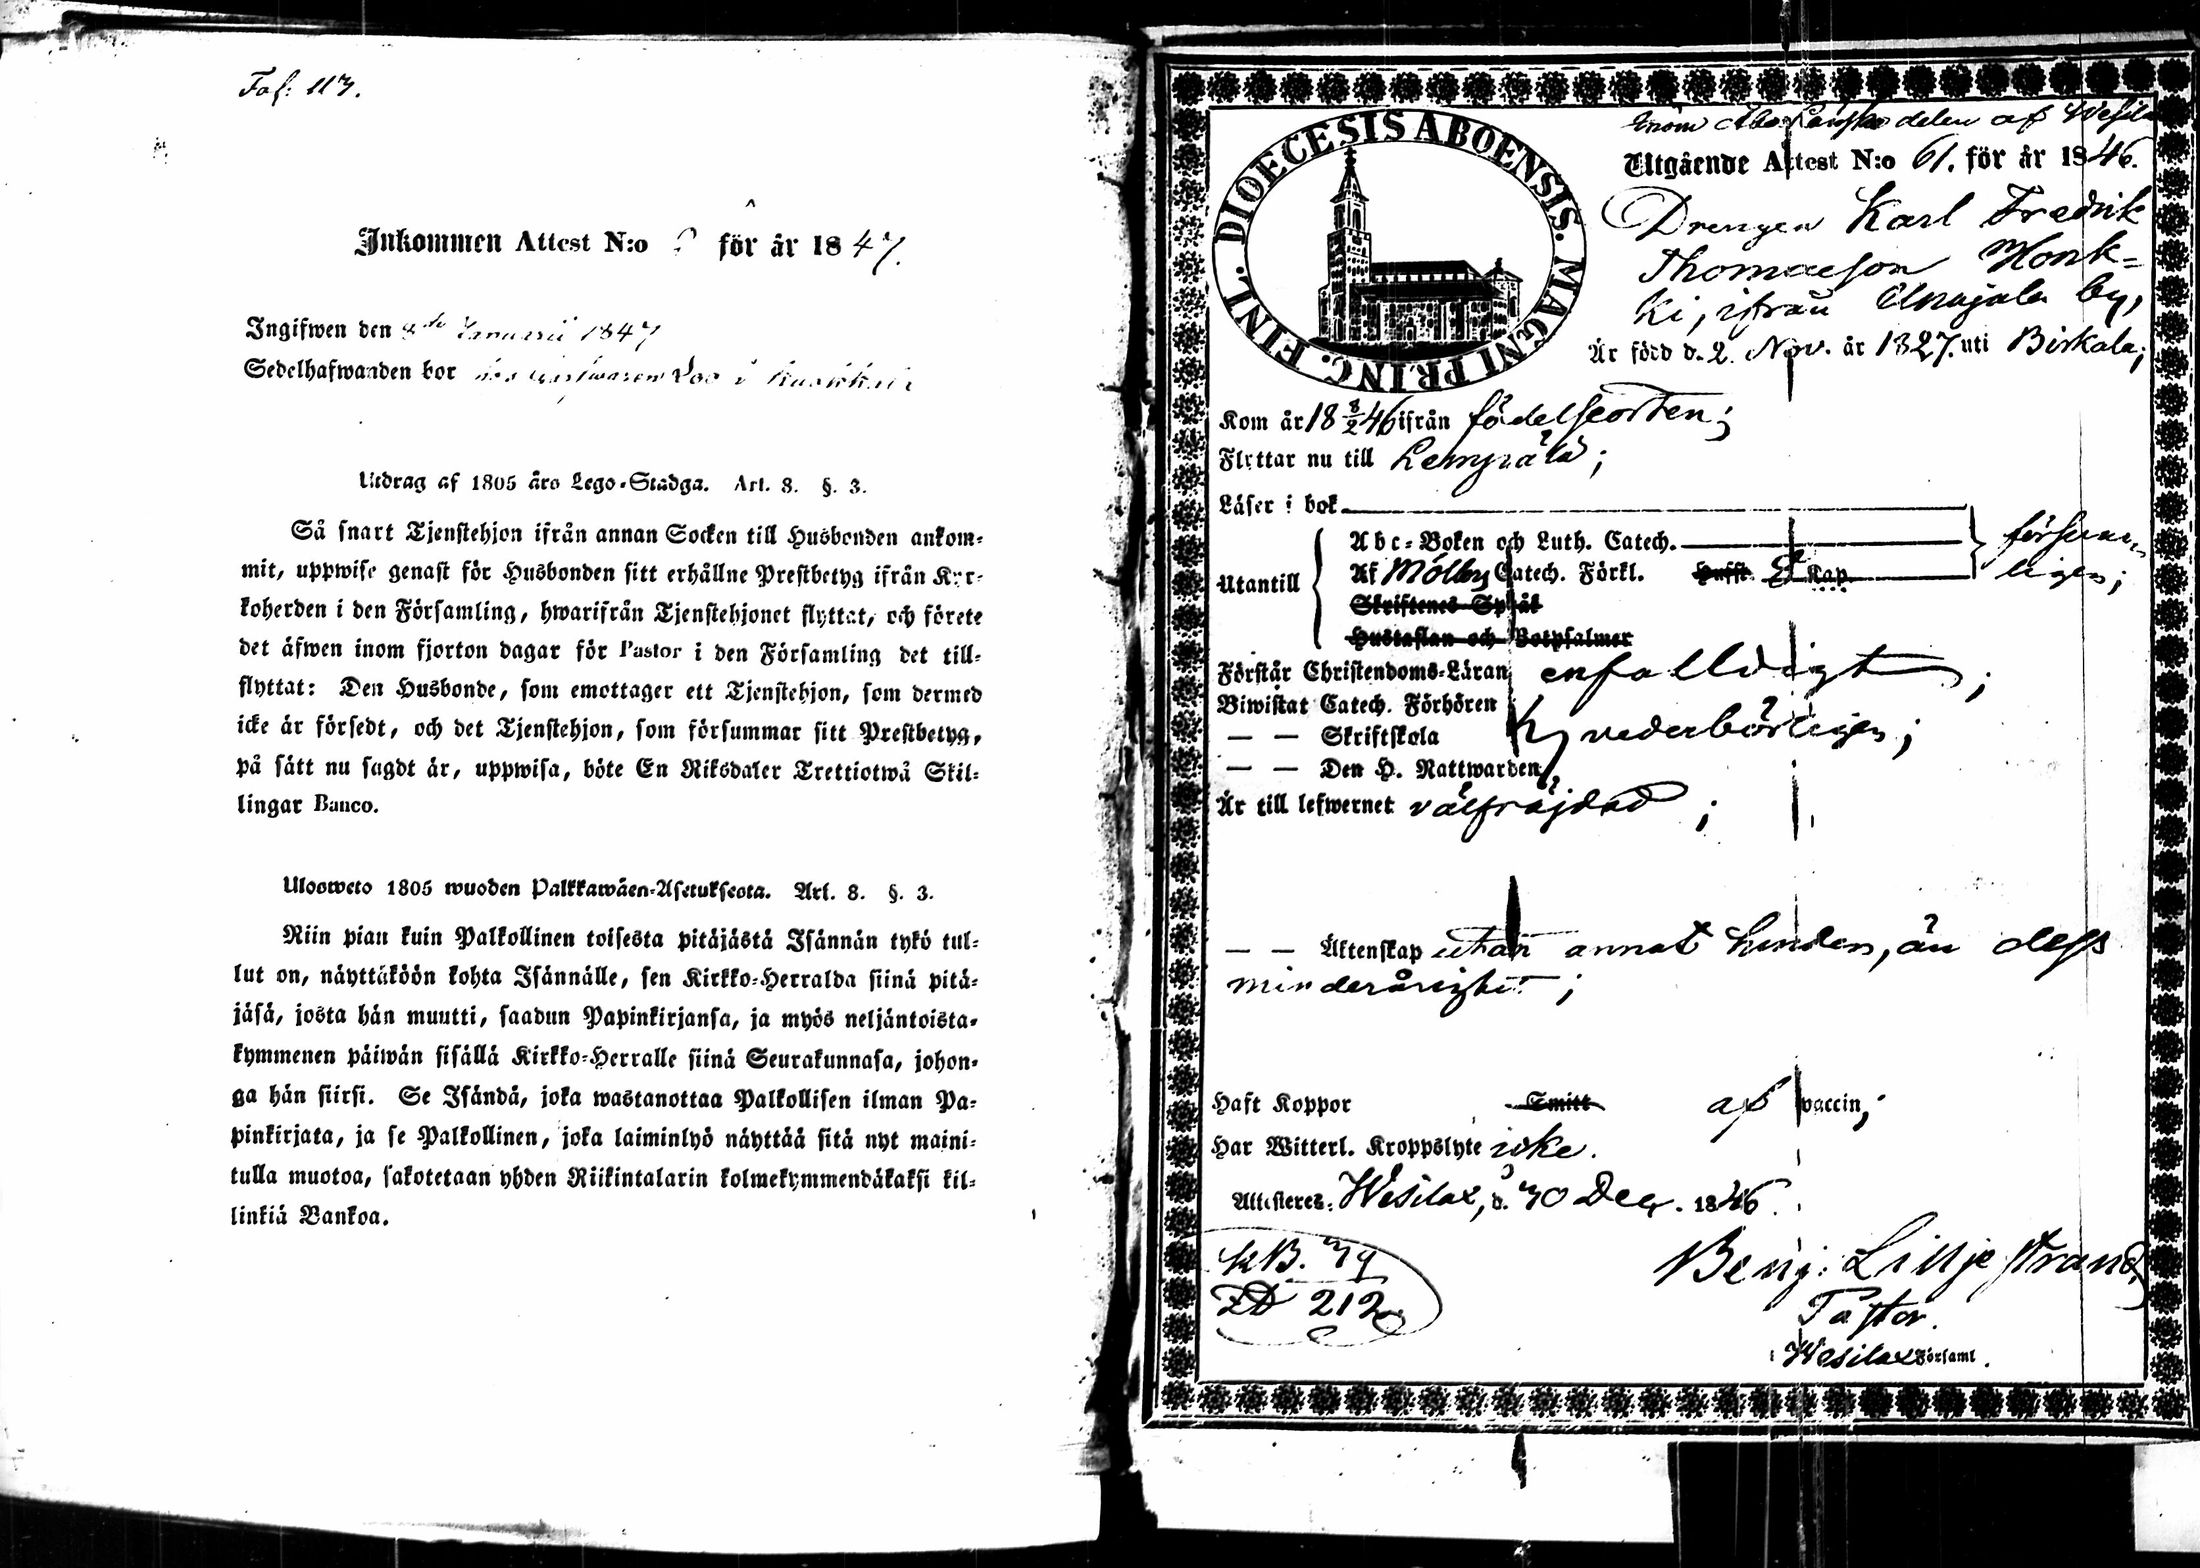 Fol: 113.
Inkommen Attest N:o för år 1847.
Ingifwen den 8de Januarii 1847
Sedelhafwanden bor
Utdrag af 1805 års Lego-Stadga. Art. 8. §. 3.
Så snart Tjenstehjon ifrån annan Socken till Husbonden ankom-
mit, uppwise genast för Husbonden sitt erhållne Prestbetyg ifrån Kyr-
koherden i den Församling, hwarifrån Tjenstehjonet flyttat, och förete
det äfwen inom fjorton dagar för Pastor i den Församling det till-
flyttat: Den Husbonde, som emottager ett Tjenstehjon, som dermed
icke är försedt, och det Tjenstehjon, som försummar sitt Prestbetyg,
på sätt nu sagdt är, uppwisa, böte En Riksdaler Trettiotwå Skil-
lingar Banco.
Ulosweto 1805 wuoden Palkkawäen-Asetuksesta. Art. 8. §. 3.
Niin pian kuin Palkollinen toisesta pitäjästä Isännän tykö tul-
lut on, näyttäköön kohta Isännälle, sen Kirkko-Herralda siinä pitä-
jäsä, josta hän muutti, saadun Papinkirjansa, ja myös neljäntoista-
kymmenen päiwän sisällä Kirkko-Herralle siinä Seurakunnasa, johon-
ga hän siirsi. Se Isändä, joka wastanottaa Palkollisen ilman Pa-
pinkirjata, ja se Palkollinen, joka laiminlyö näyttää sitä nyt maini-
tulla muotoa, sakotetaan yhden Riikintalarin kolmekymmendäkaksi kil-
linkiä Bankoa.
DIOECESIS ABOENSIS. MAGNI PRINC. FINL.
inom Åbo Länska delen af Wesila
Utgående Attest N:o 61. för år 1846.
Drengen Karl Fredrik
Thomaeson Honk-
ki, ifrån Anajala by,
Är född d. 2. Nov. år 1827. uti Birkala;
Kom år 18 8/2 46 ifrån födelseorten;
Flyttar nu till Lempäla;
Läser i bok
Abc-Boken och Luth. Catech.
försvar-
Utantill
Af Möllers Catech. Förkl. Hufst. Kap.
ligen;
Skriftenes Språk
Hustaflan och Botpsalmer
Förstår Christendoms-Läran enfalldigt;
Biwistat Catech. Förhören
— — Skriftskola vederbörligen;
— — Den H. Nattwarden
Är till lefwernet välfräjdad;
— — Äktenskap utan annat hinder, än dess
minderårighet;
Haft Koppor Smitt af vaccin;
Har Witterl. Kroppslyte icke.
Attesteres: Wesilax, d. 30 Dec. 1846.
KB. 79
212
Benj: Lilljestrand,
Pastor.
i Wesilax Församl.